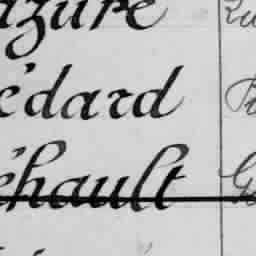 azure
édard
éhault